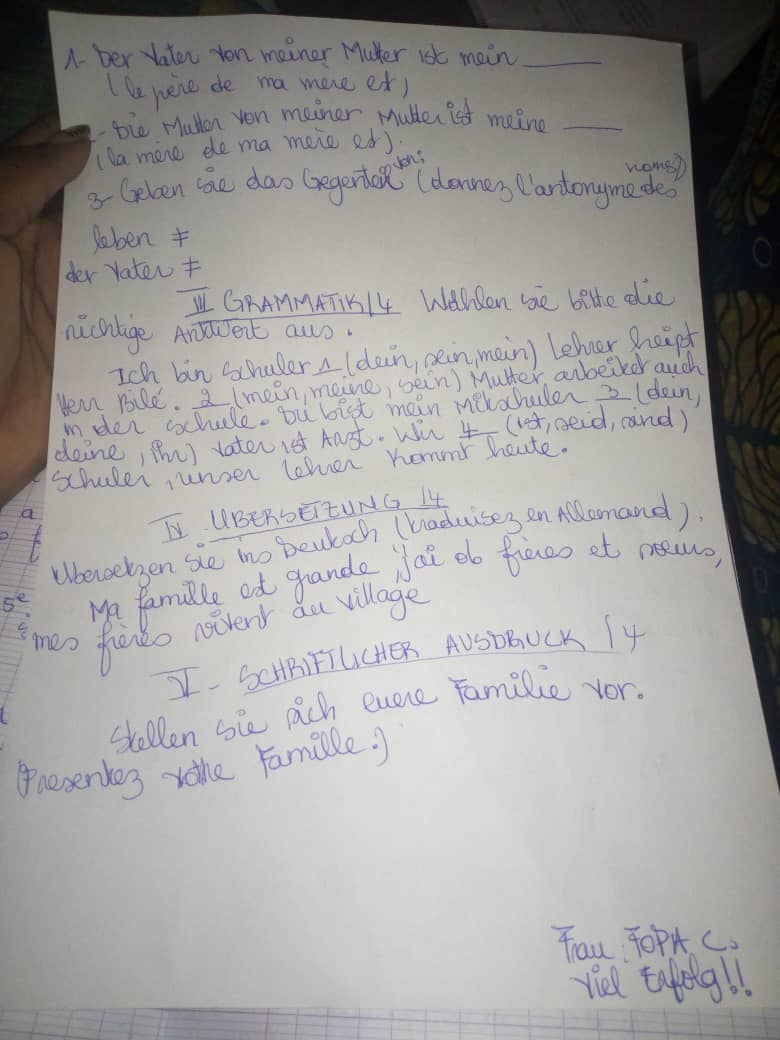 1- Der Vater von meiner Mutter ist mein ______
(le père de ma mère est)
- Die Mutter von meiner Mutter ist meine ____
(la mère de ma mère est).
3- Geben Sie das Gegenteil von: (donnez l'antonyme des noms)
leben ≠
der Vater ≠
III GRAMMATIK/4 Wählen sie bitte die
richtige Antwort aus.
Ich bin Schuler 1 (dein, sein, mein) Lehrer heipt
Herr Bilé. 2 (mein, meine, sein) Mutter arbeitet auch
in der Schule. Du bist mein Mitschuler 3 (dein,
deine, ihr) Vater ist Arzt. Wir 4 (ist, seid, sind)
Schuler, unser Lehrer kommt heute.
IV ÜBERSETZUNG /4
Ubersetzen Sie ins Deutsch (traduisez en Allemand).
Ma famille est grande, j'ai frères et sœurs,
mes frères vivent au village
V- SCHRIFTLICHER AUSDRUCK /4
Stellen Sie sich euere Familie vor.
(Presentez votre Famille.)
Frau: FOPA C.
Viel Erfolg!!